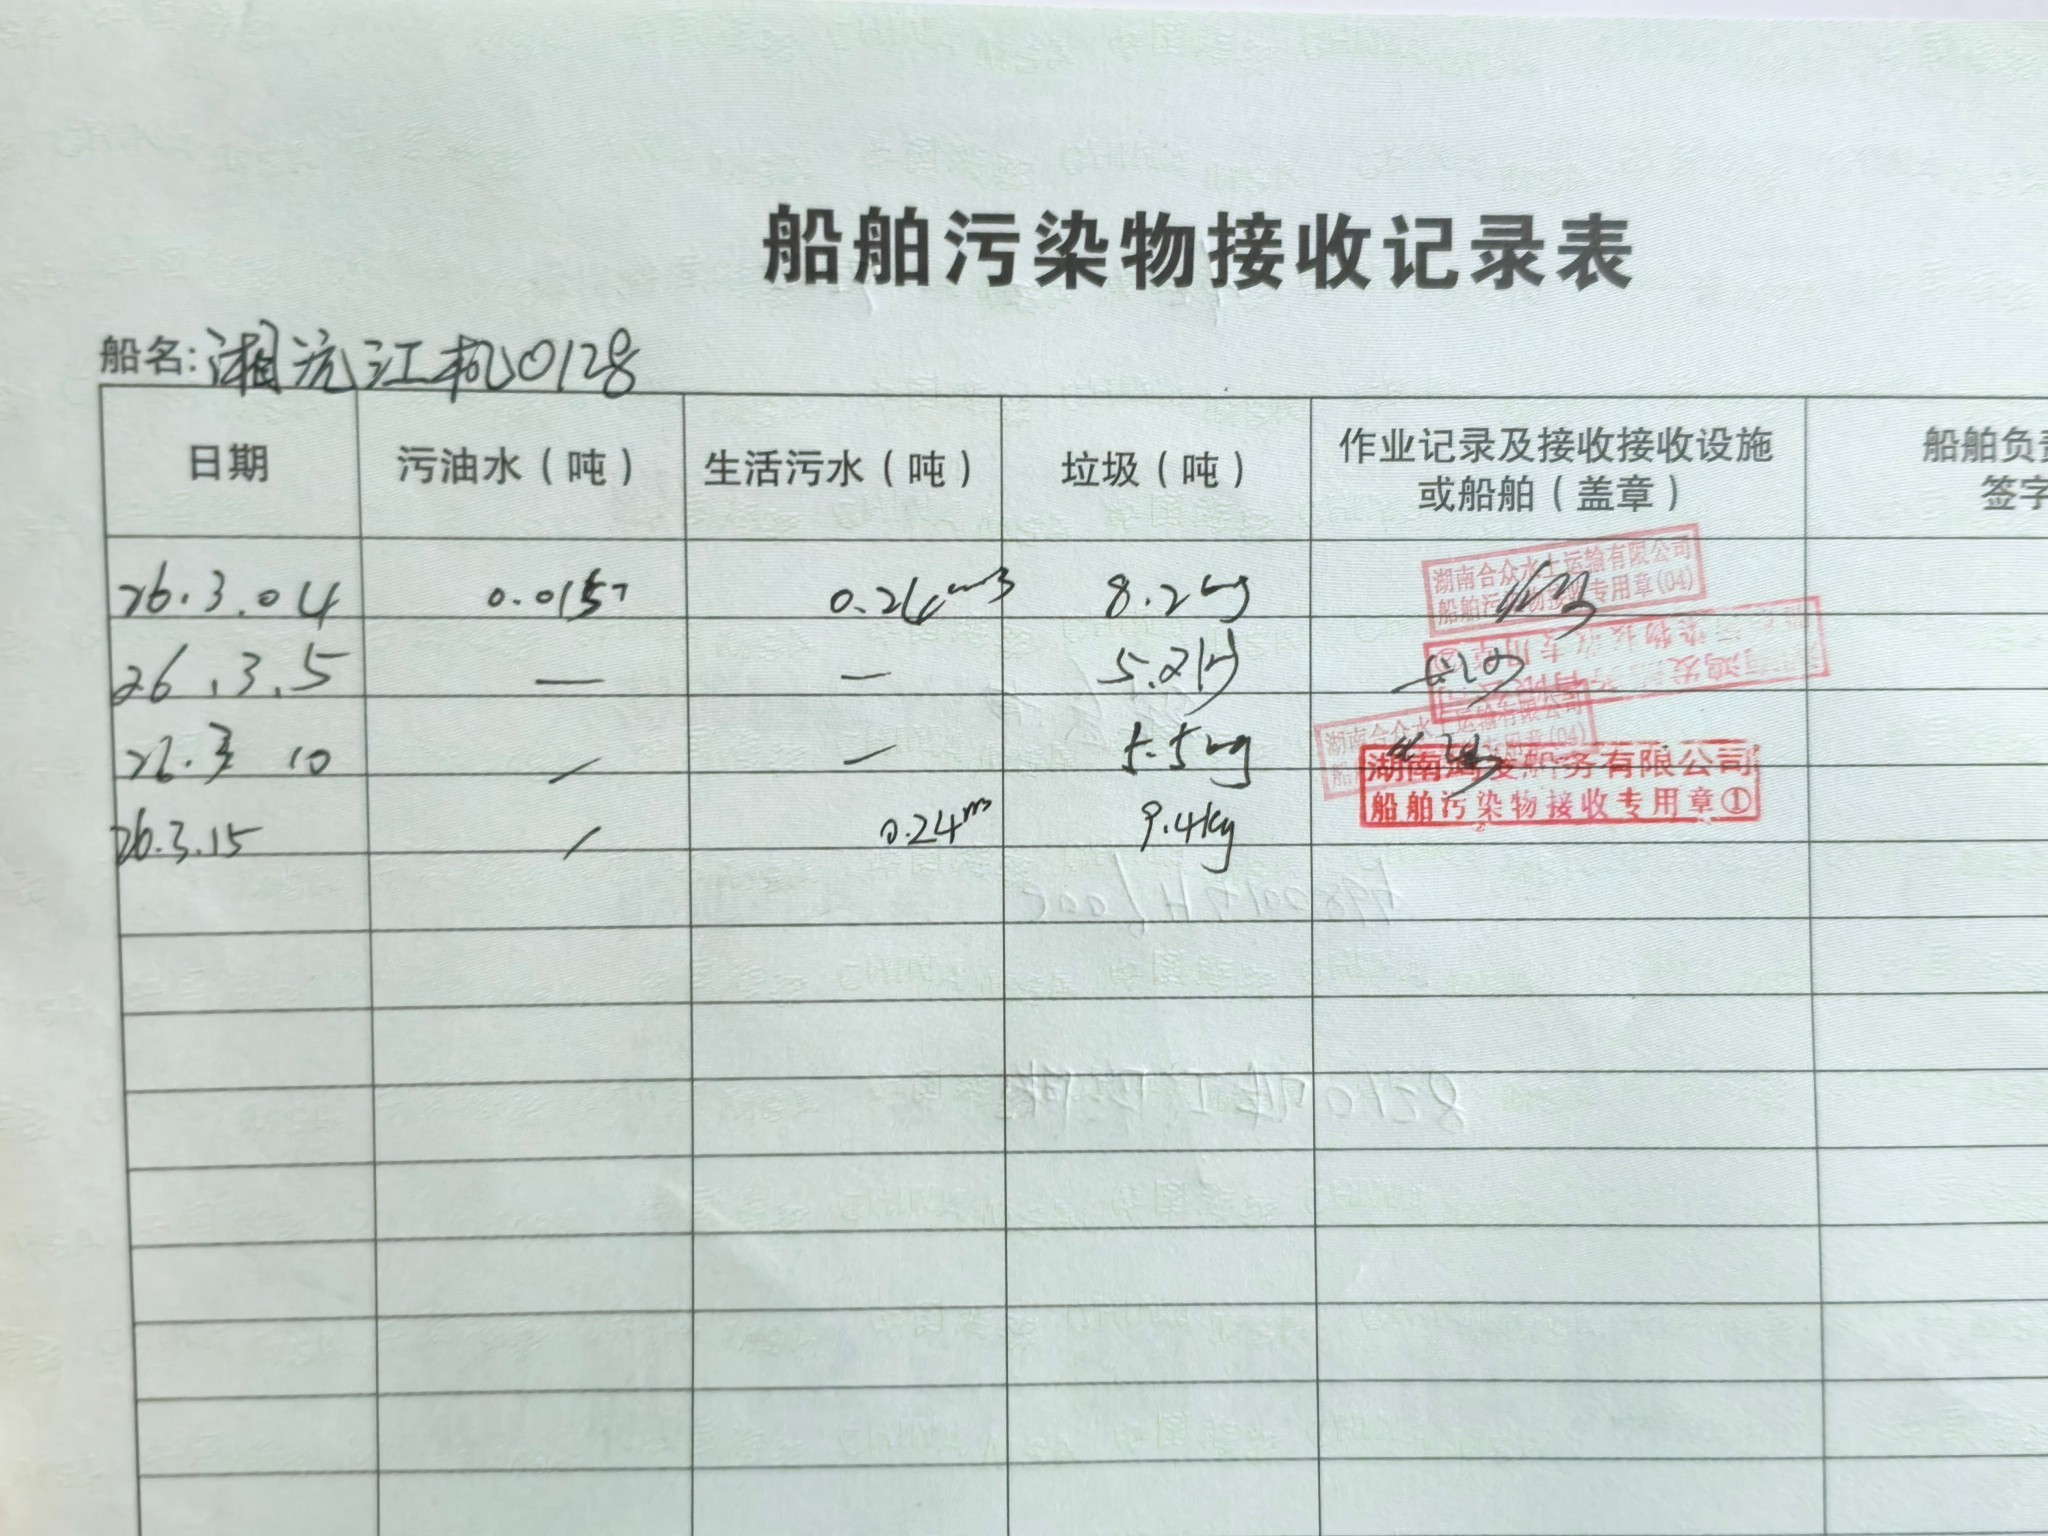 船舶污染物接收记录表
船名:湘沅江机0128
日期 污油水（吨） 生活污水（吨） 垃圾（吨） 作业记录及接收接收设施 船舶负责
或船舶（盖章） 签字
湖南合众水上运输有限公司
船舶污染物接收专用章(04)
26.3.04 0.015T 8.2kg
26.3.5 — — 5.2kg
湖南合众水上运输有限公司
26.3 10 / — 5.5kg
湖南鸿发船务有限公司
船舶污染物接收专用章①
26.3.15 / 0.24m³ 9.4kg